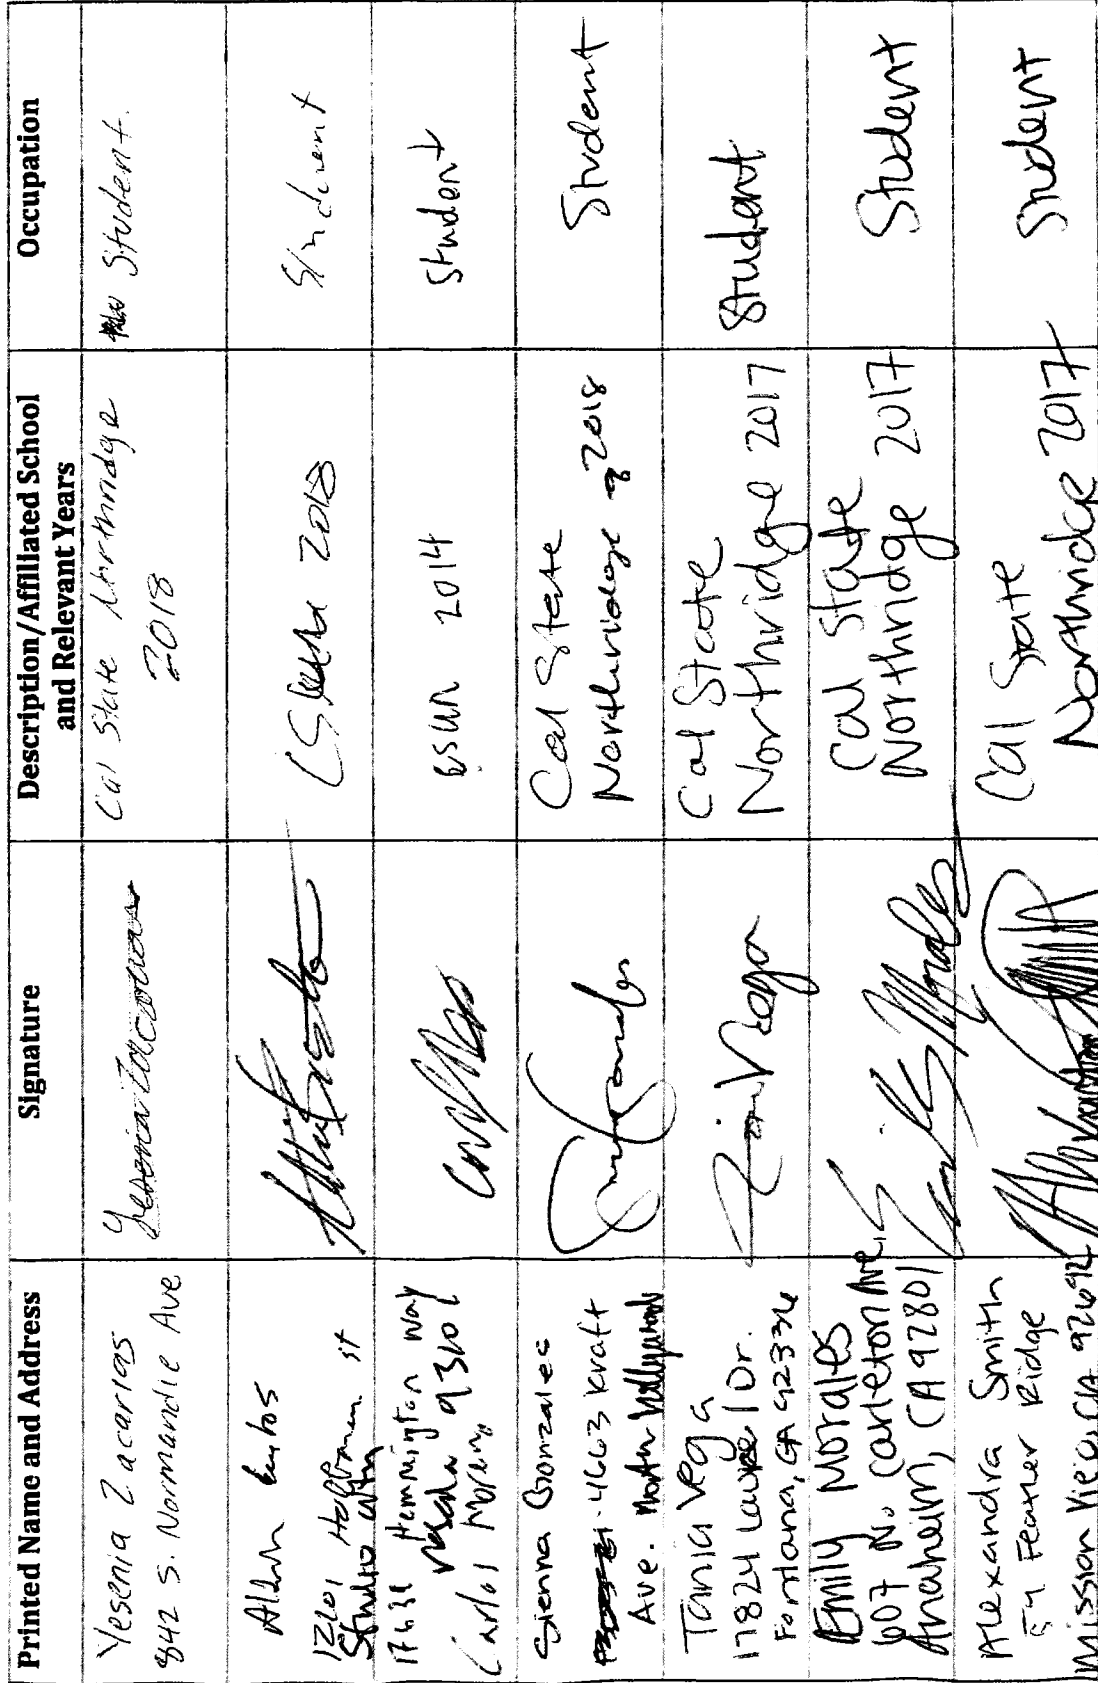 Printed Name and Address
Signature
Description/Affiliated School
and Relevant Years
Occupation
Yesenia Zacarias
842 S. Normandie Ave
Cal State Northridge
2018
Student
12101 Hoffman st
Studio
2018
Student
17631 Hemmington Way
93101
Carlos Moreno
CSUN 2014
Student
Sienna Gonzales
4663 Kraft
Ave. North Hollywood
Cal State
Northridge 2018
Student
Tania Vega
17824 Laurel Dr.
Fontana, CA 92336
Cal State
Northridge 2017
Student
Emily Morales
607 N. Carleton Ave,
Anaheim, CA 92801
Emily Morales
Cal State
Northridge 2017
Student
Alexandra Smith
54 Feather Ridge
Mission Viejo, CA 92692
Cal State
Northridge 2017
Student